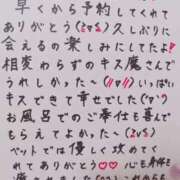 早くから予約してくれて
ありがとう(≧▽≦)久しぶりに
会えるの楽しみにしてたよ!
相変わらずのキス魔さんで
うれしかった〜(〃▽〃)いっぱい
キスできて幸せでした(°▽°)
お風呂でのご奉仕も喜んで
もらえてよかった〜(≧▽≦)
ベットでは優しく攻めてく
れてありがとう♡♡心も身体も